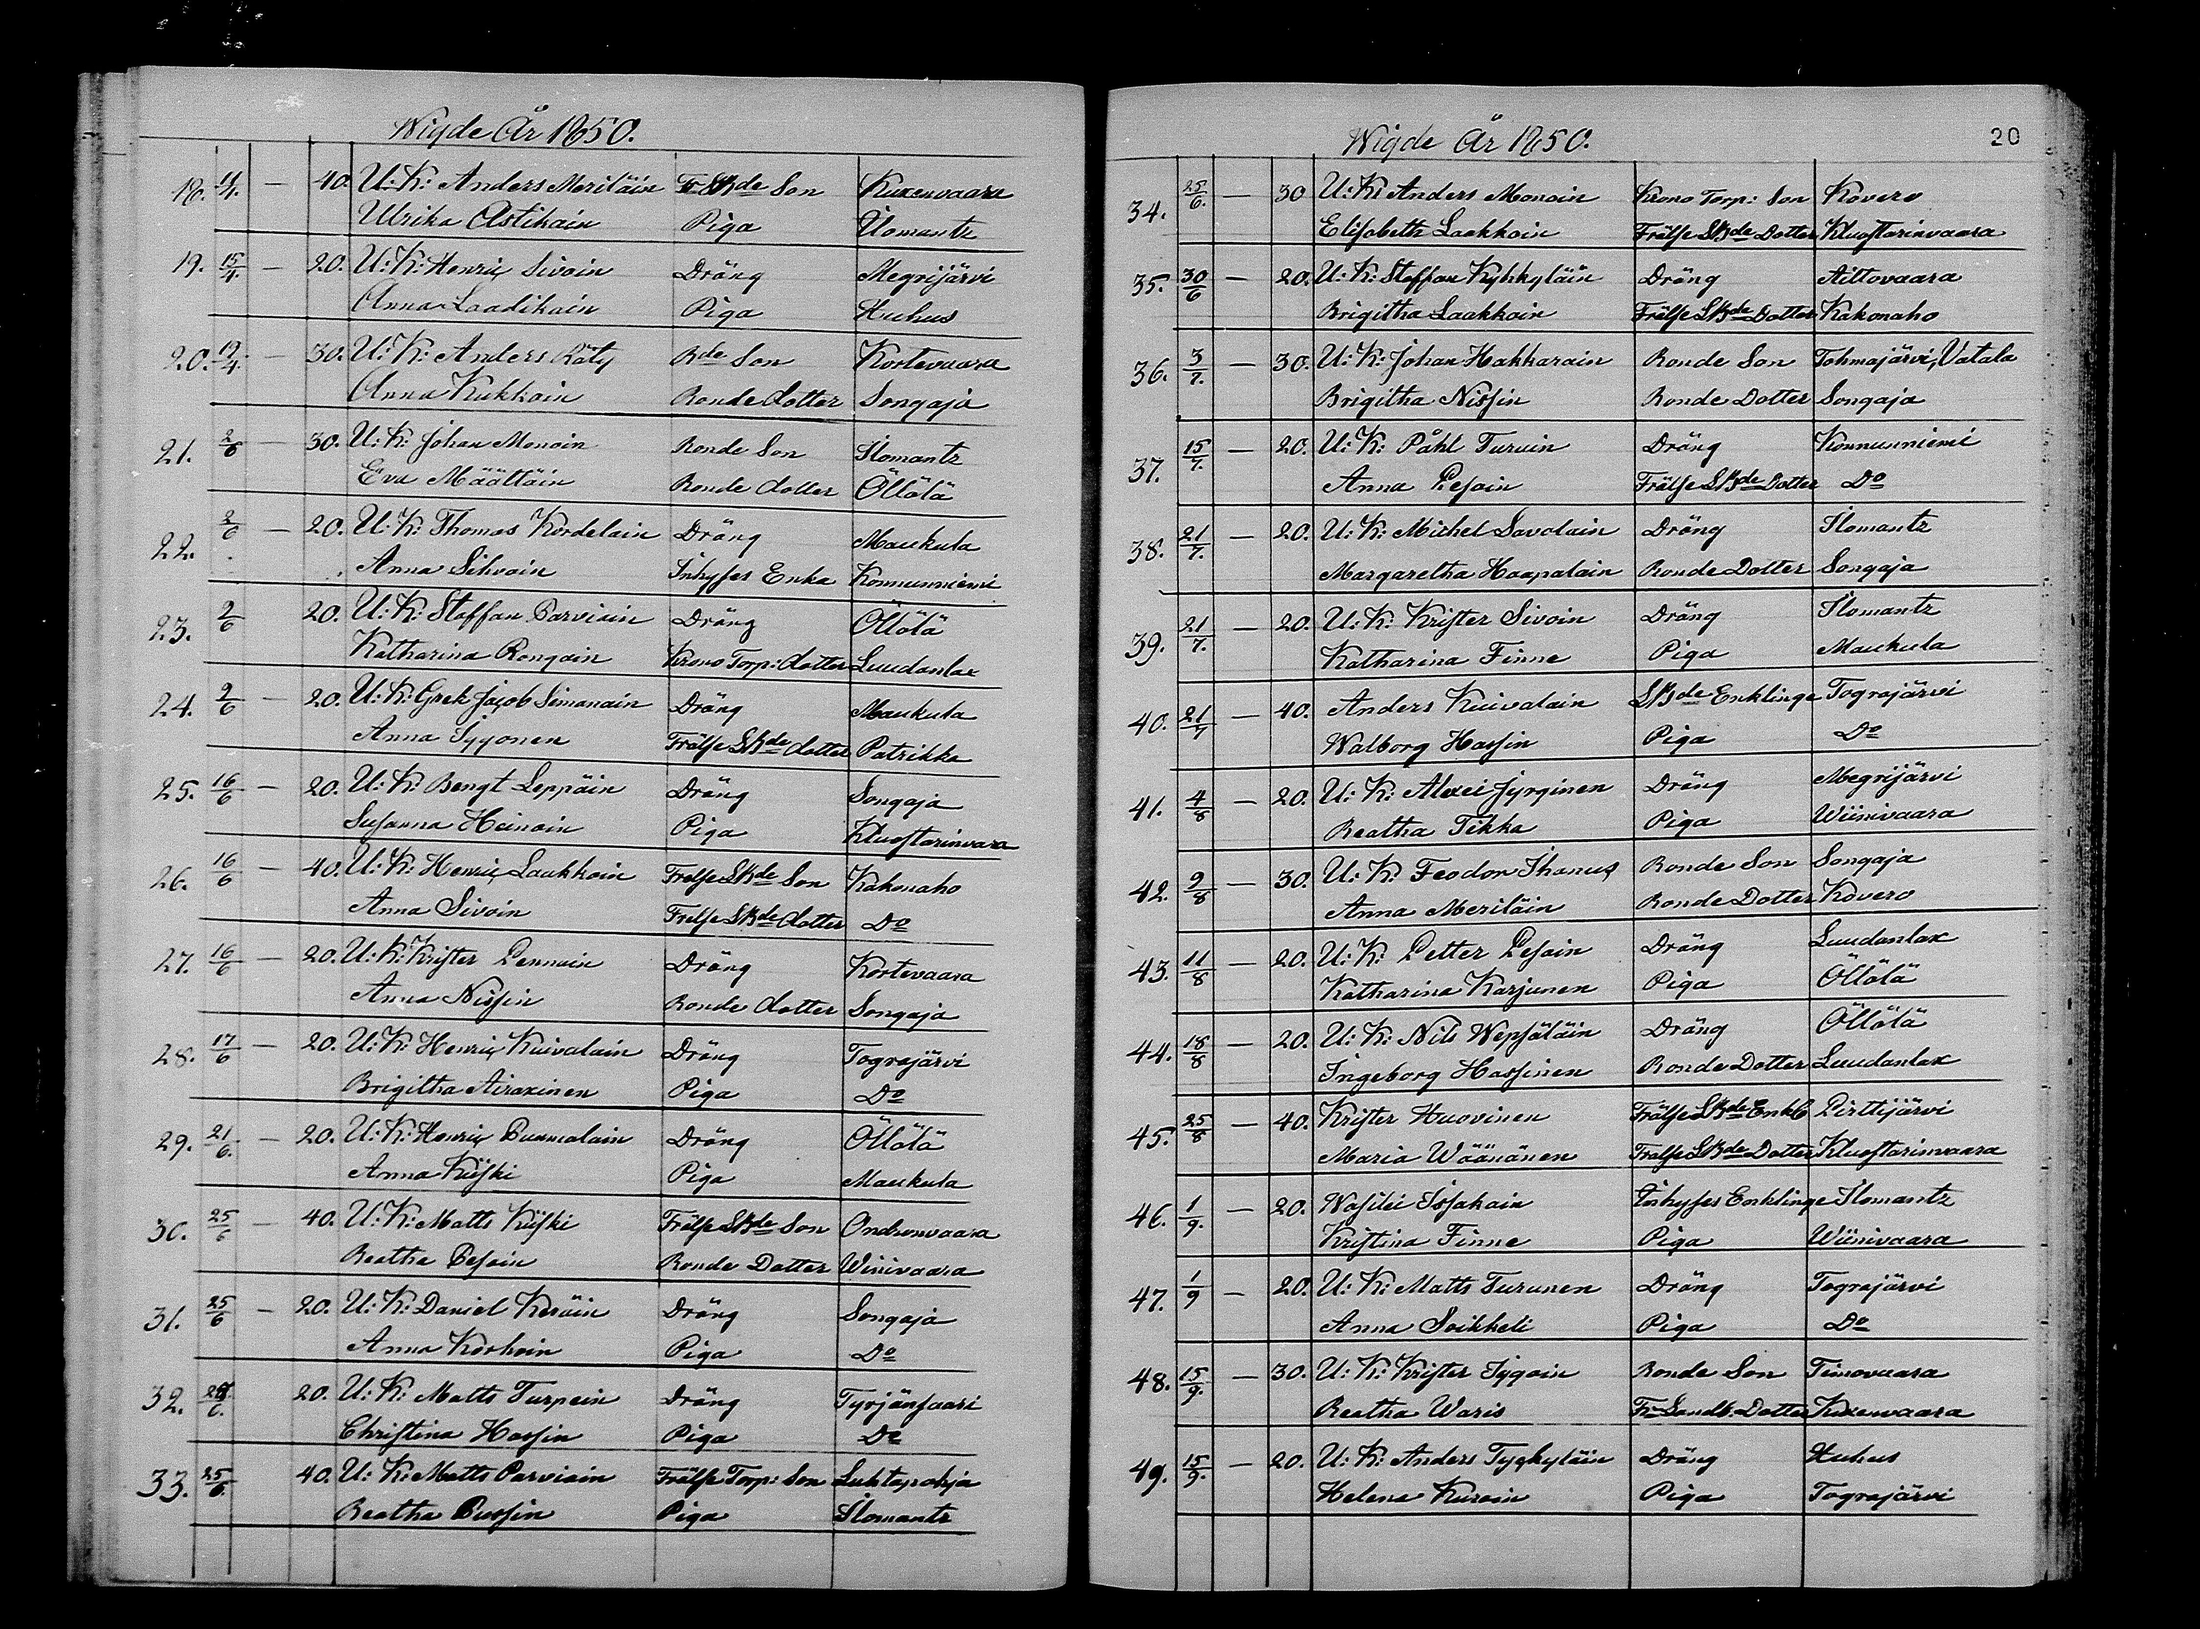 Wigde År 1850.
18. 11/4. — 40. U: K: Anders Meriläin Fr Skde Son Kuxenvaara
Ulrika Astikain Piga Ilomantz
19. 15/4 — 20. U: K: Henric Sivoin Dräng Megrijärvi
Anna Laadikain Piga Huhus
20. 19/4. — 30. U: K: Anders Räty Bde Son Kortevaara
Anna Kukkoin Bonde dotter Songaja
21. 2/6 — 30. U: K: Johan Monoin Bonde Son Ilomantz
Eva Määttäin Bonde dotter Öllölä
22. 2/6 — 20. U: K: Thomas Kordelain Dräng Maukula
Anna Sihvoin Inhyses Enka Konnunniemi
23. 2/6 20. U: K: Staffan Parviain Dräng Öllölä
Katharina Rongain Krono Torp: dotter Luudanlax
24. 9/6 — 20. U: K: Grek Jacob Simanain Dräng Maukula
Anna Iyyonen Frälse Skde dotter Patrikka
25. 16/6 — 20. U: K: Bengt Leppäin Dräng Songaja
Susanna Heinoin Piga Kluostarinvaara
26. 16/6 — 40. U: K: Henric Laakkoin Frelse Skde Son Kakonaho
Anna Sivoin Frelse Skde dotter Do
27. 16/6 — 20. U: K: Krister Pennain Dräng Kortevaara
Anna Nissin Bonde dotter Songaja
28. 17/6 — 20. U: K: Henric Kuivalain Dräng Tograjärvi
Brigitha Airaxinen Piga Do
29. 21/6. — 20. U: K: Henric Puumalain Dräng Öllölä
Anna Kiiski Piga Maukula
30. 25/6 — 40. U: K: Matts Kiiski Frälse Skde Son Ondronvaara
Beatha Pesoin Bonde Dotter Wiinivaara
31. 25/6 — 20. U: K: Daniel Keräin Dräng Songaja
Anna Korhoin Piga Do
32. 6. 20. U: K: Matts Turpein Dräng Tyrjänsaari
Christina Hassin Piga Do
33. 25/6. 40. U: K: Matts Parviain Frälse Torp: Son Luhtapohja
Beatha Pussin Piga Ilomantz
Wigde År 1850. 20
34. 25/6. — 30 U: K: Anders Monoin Krono Torp: Son Kovero
Elisabeth Laakkoin Frälse Skde Dotter Kluostarinvaara
35. 30/6 — 20. U: K: Staffan Kyhkyläin Dräng Aittovaara
Brigitha Laakkoin Frälse Skde Dotter Kakonaho
36. 3/7. — 30. U: K: Johan Hakkarain Bonde Son Tohmajärvi, Vatala
Brigitha Nissin Bonde Dotter Songaja
37. 15/7. — 20. U: K: Påhl Turuin Dräng Konnunniemi
Anna Pesoin Frälse Skde Dotter Do
38. 21/7. — 20. U: K: Michel Savolain Dräng Ilomantz
Margaretha Haapalain Bonde Dotter Songaja
39. 21/7. — 20. U: K: Krister Sivoin Dräng Ilomantz
Katharina Finne Piga Maukula
40. 21/7 — 40. Anders Kuivalain Skde Enklinge Tograjärvi
Walborg Hassin Piga Do
41. 4/8 — 20. U: K: Alexei Jyrginen Dräng Megrijärvi
Beatha Tikka Piga Wiinivaara
42. 9/8 — 30. U: K: Feodor Ihanus Bonde Son Songaja
Anna Meriläin Bonde Dotter Kovero
43. 11/8 — 20. U: K: Petter Pesoin Dräng Luudanlax
Katharina Karjunen Piga Öllölä
44. 18/8 — 20. U: K: Nils Wepsäläin Dräng Öllölä
Ingeborg Hassinen Bonde Dotter Luudanlax
45. 25/8 — 40. Krister Huovinen Frälse Skde Enkl Pirttijärvi
Maria Wäänänen Frälse Skde Dotter Kluostarinvaara
46. 1/9. — 20. Wasilei Issakain Inhyses Enklinge Ilomantz
Kristina Finne Piga Wiinivaara
47. 1/9 — 20. U: K: Matts Turunen Dräng Tograjärvi
Anna Soikkeli Piga Do
48. 15/9. — 30. U: K: Krister Iygoin Bonde Son Timovaara
Beatha Waris Fr Landb. Dotter Kuxenvaara
49. 15/9. — 20. U: K: Anders Tyykyläin Dräng Huhus
Helena Kuroin Piga Tograjärvi